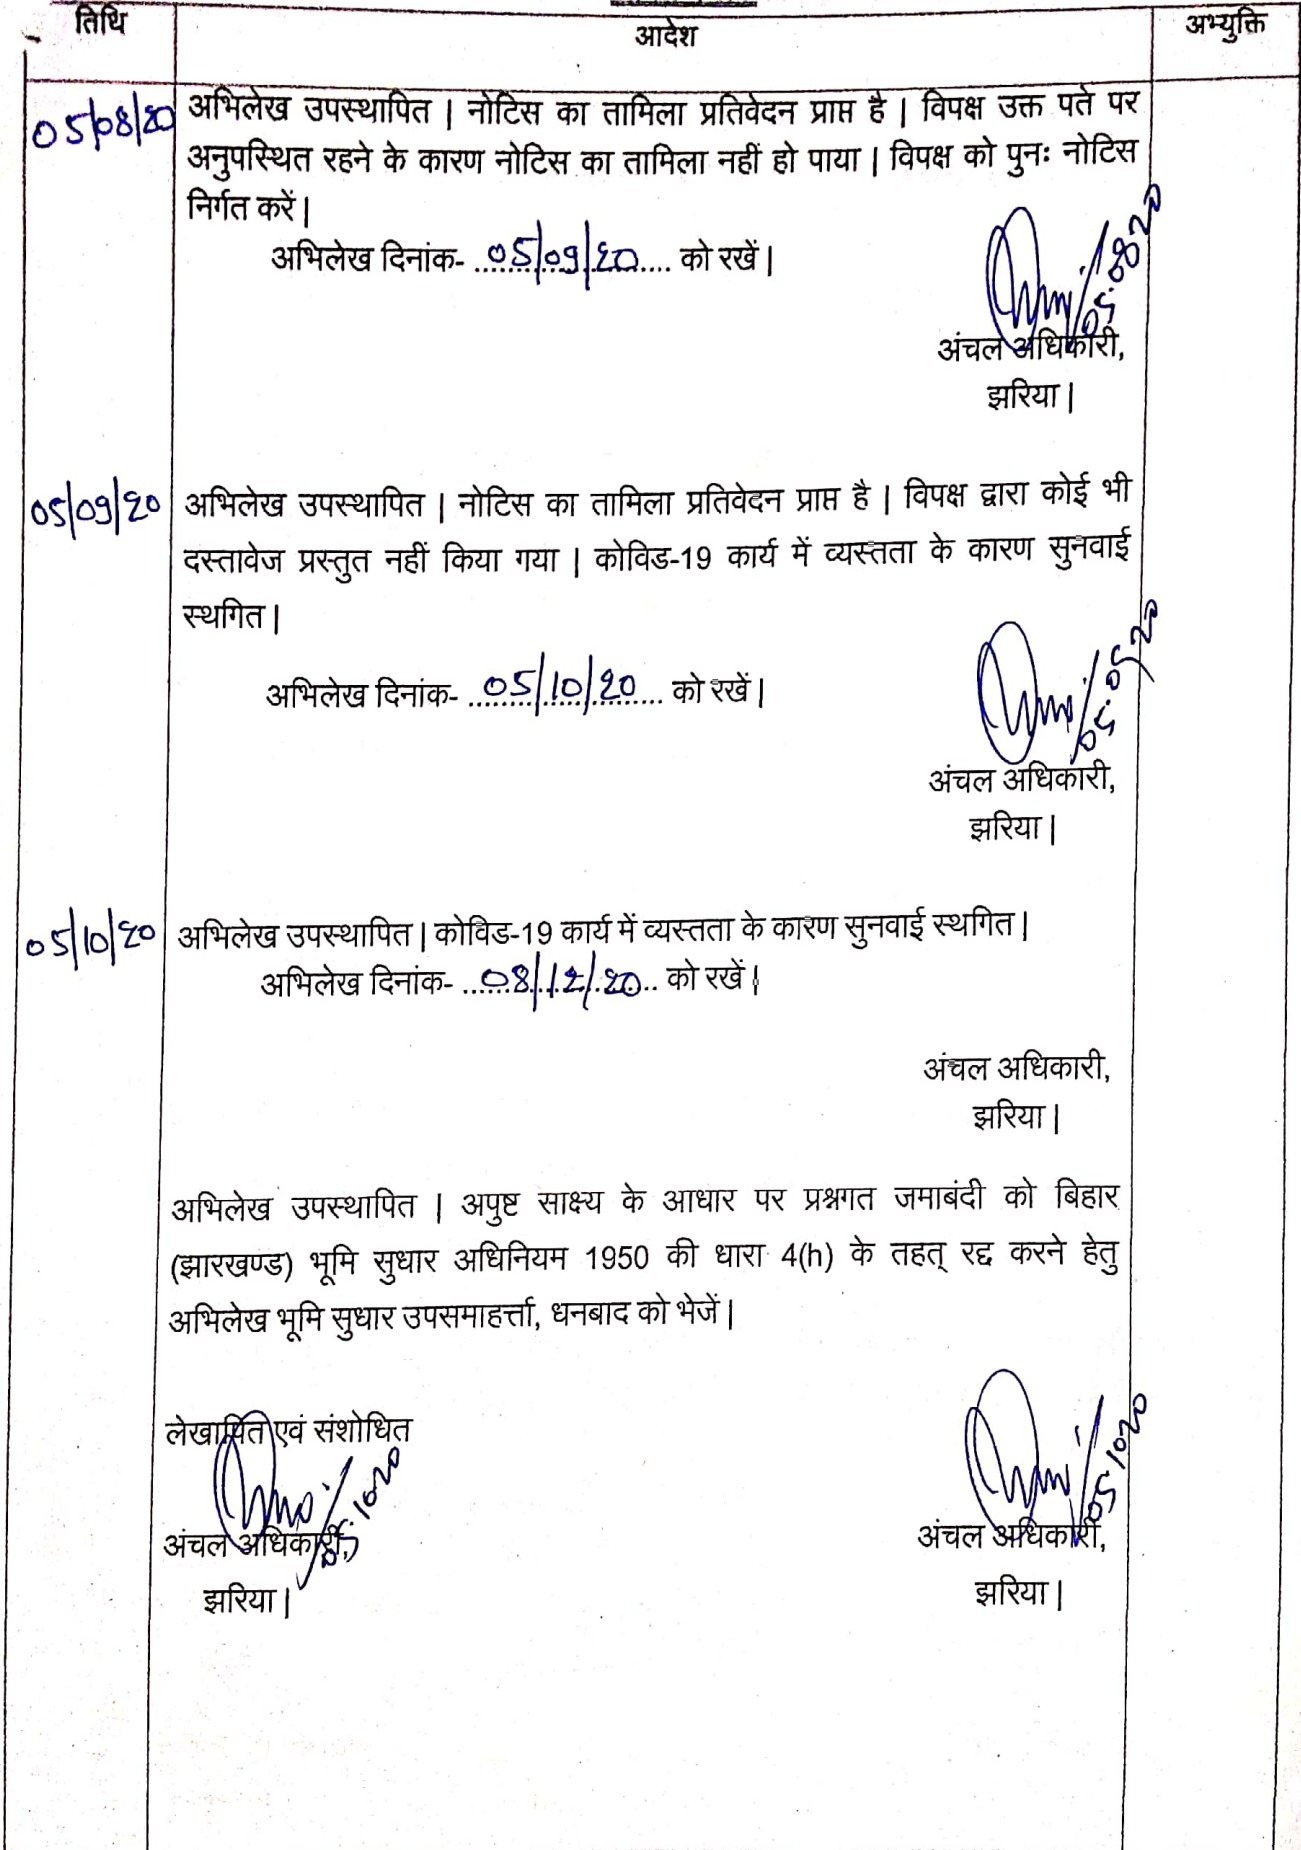 तिथि आदेश अभ्युक्ति
05/08/20 अभिलेख उपस्थापित | नोटिस का तामिला प्रतिवेदन प्राप्त है | विपक्ष उक्त पते पर
अनुपस्थित रहने के कारण नोटिस का तामिला नहीं हो पाया | विपक्ष को पुनः नोटिस
निर्गत करें |
अभिलेख दिनांक- 05/09/20 को रखें |
05.08.20
अंचल अधिकारी,
झरिया |
05/09/20 अभिलेख उपस्थापित | नोटिस का तामिला प्रतिवेदन प्राप्त है | विपक्ष द्वारा कोई भी
दस्तावेज प्रस्तुत नहीं किया गया | कोविड-19 कार्य में व्यस्तता के कारण सुनवाई
स्थगित |
अभिलेख दिनांक- 05/10/20 को रखें |
अंचल अधिकारी,
झरिया |
05/10/20 अभिलेख उपस्थापित | कोविड-19 कार्य में व्यस्तता के कारण सुनवाई स्थगित |
अभिलेख दिनांक- 08/12/20 को रखें |
अंचल अधिकारी,
झरिया |
अभिलेख उपस्थापित | अपुष्ट साक्ष्य के आधार पर प्रश्नगत जमाबंदी को बिहार
(झारखण्ड) भूमि सुधार अधिनियम 1950 की धारा 4(h) के तहत् रद्द करने हेतु
अभिलेख भूमि सुधार उपसमाहर्त्ता, धनबाद को भेजें |
लेखापित एवं संशोधित
05.10.20 05.10.20
अंचल अधिकारी, अंचल अधिकारी,
झरिया | झरिया |